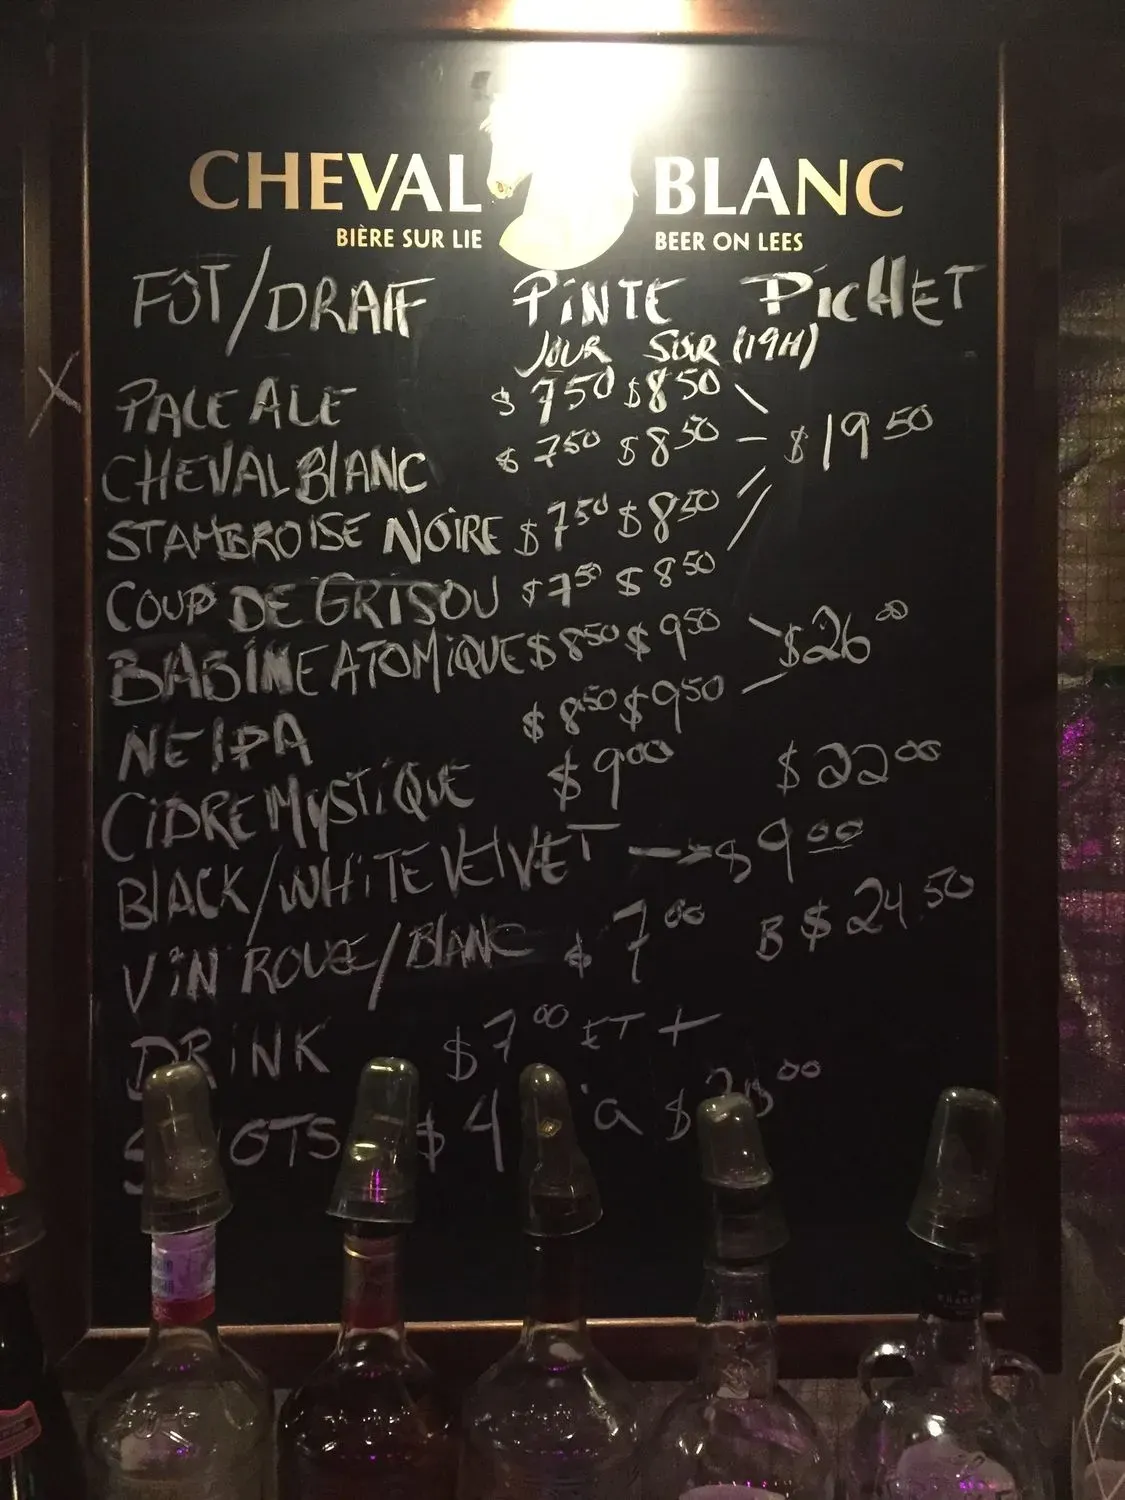 CHEVAL BLANC
BIÈRE SUR LIE BEER ON LEES
FÛT/DRAFF PINTE PICHET
JOUR SOIR (19H)
PALE ALE $750 $850
CHEVAL BLANC $750 $850 – $1950
STAMBROISE NOIRE $750 $850
COUP DE GRISOU $750 $850
BABINE ATOMIQUE $850 $950 $2600
NEIPA $850 $950
CIDRE MYSTIQUE $900 $2200
BLACK/WHITE VELVET → $900
VIN ROUGE/BLANC $700 B $24.50
DRINK $700 ET +
$4 à $